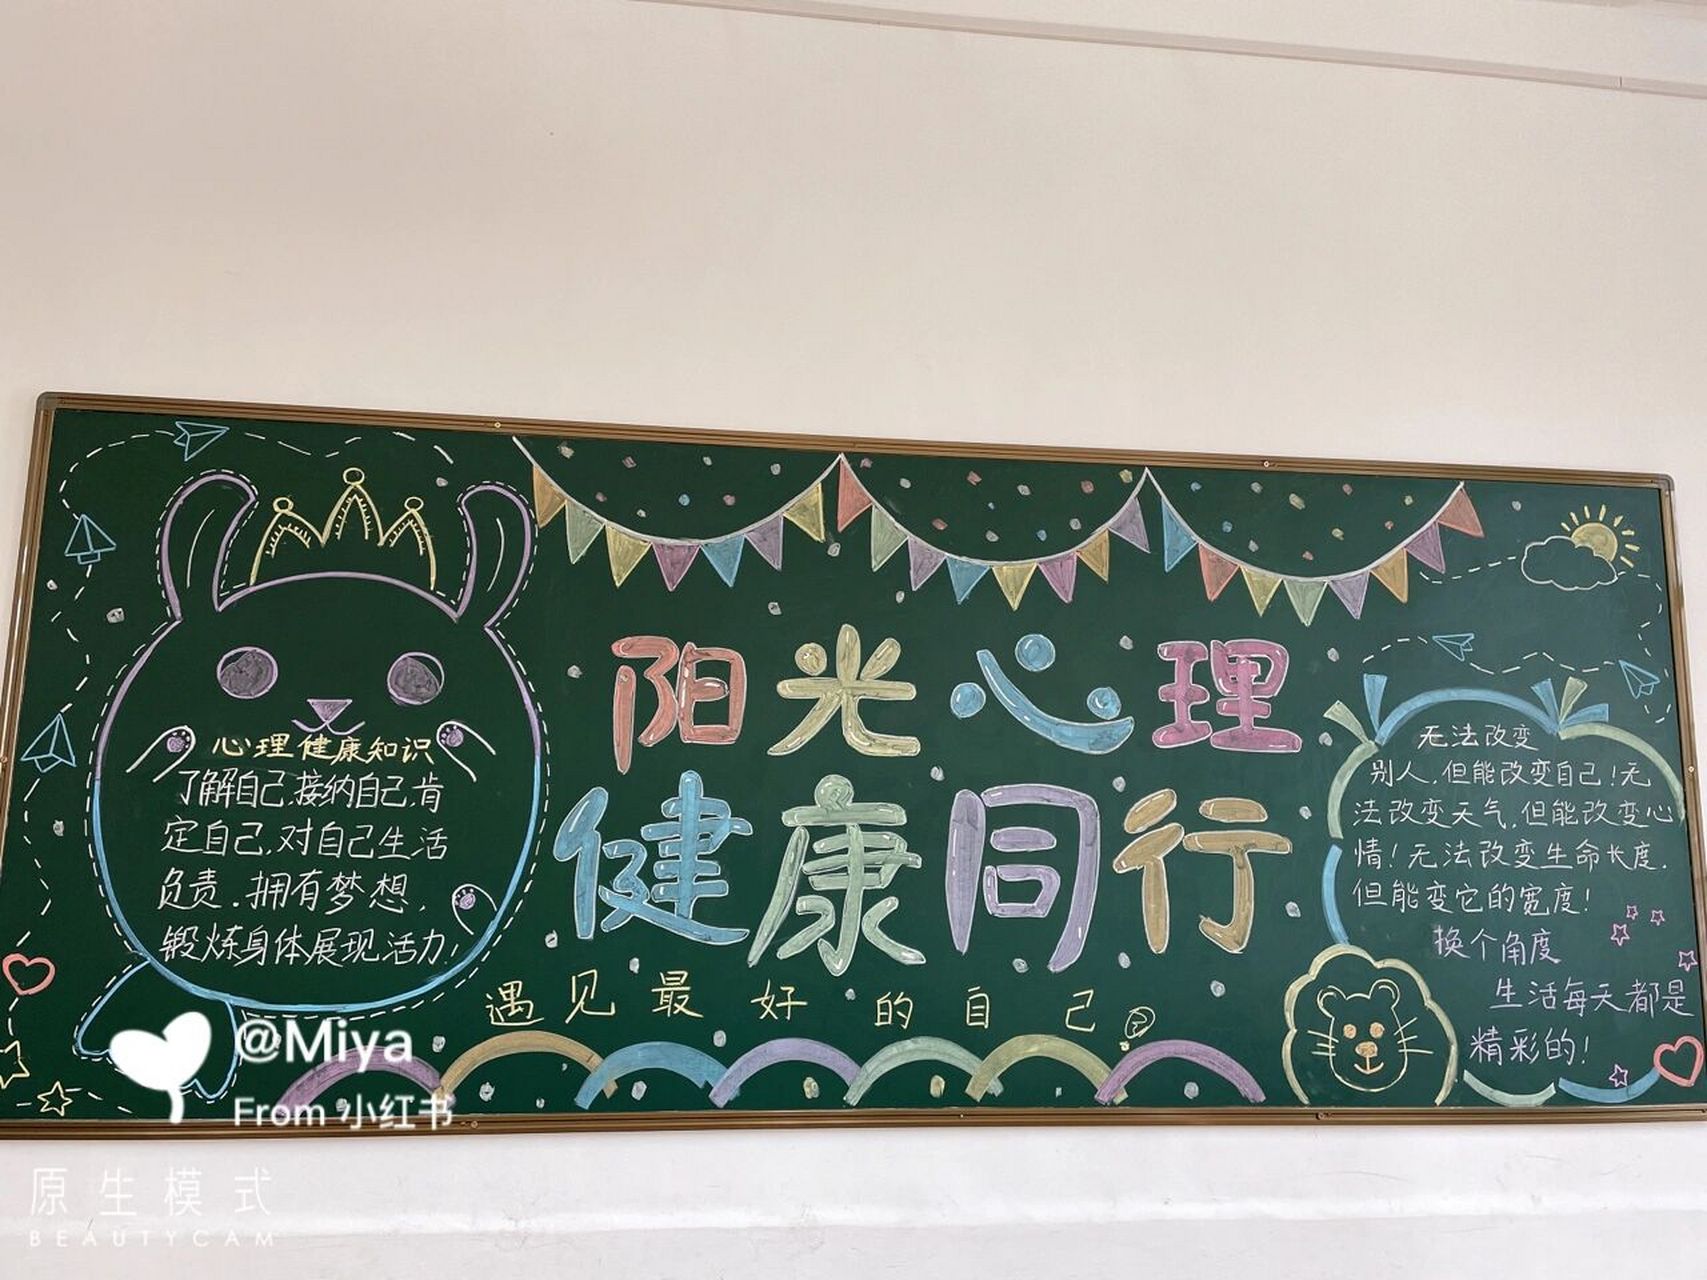 阳光心理
健康同行
遇见最好的自己
心理健康知识
了解自己,接纳自己,肯
定自己,对自己生活
负责.拥有梦想,
锻炼身体展现活力!
无法改变
别人,但能改变自己!无
法改变天气,但能改变心
情!无法改变生命长度.
但能变它的宽度!
换个角度
生活每天都是
精彩的!
@Miya
From 小红书
原生模式
BEAUTYCAM